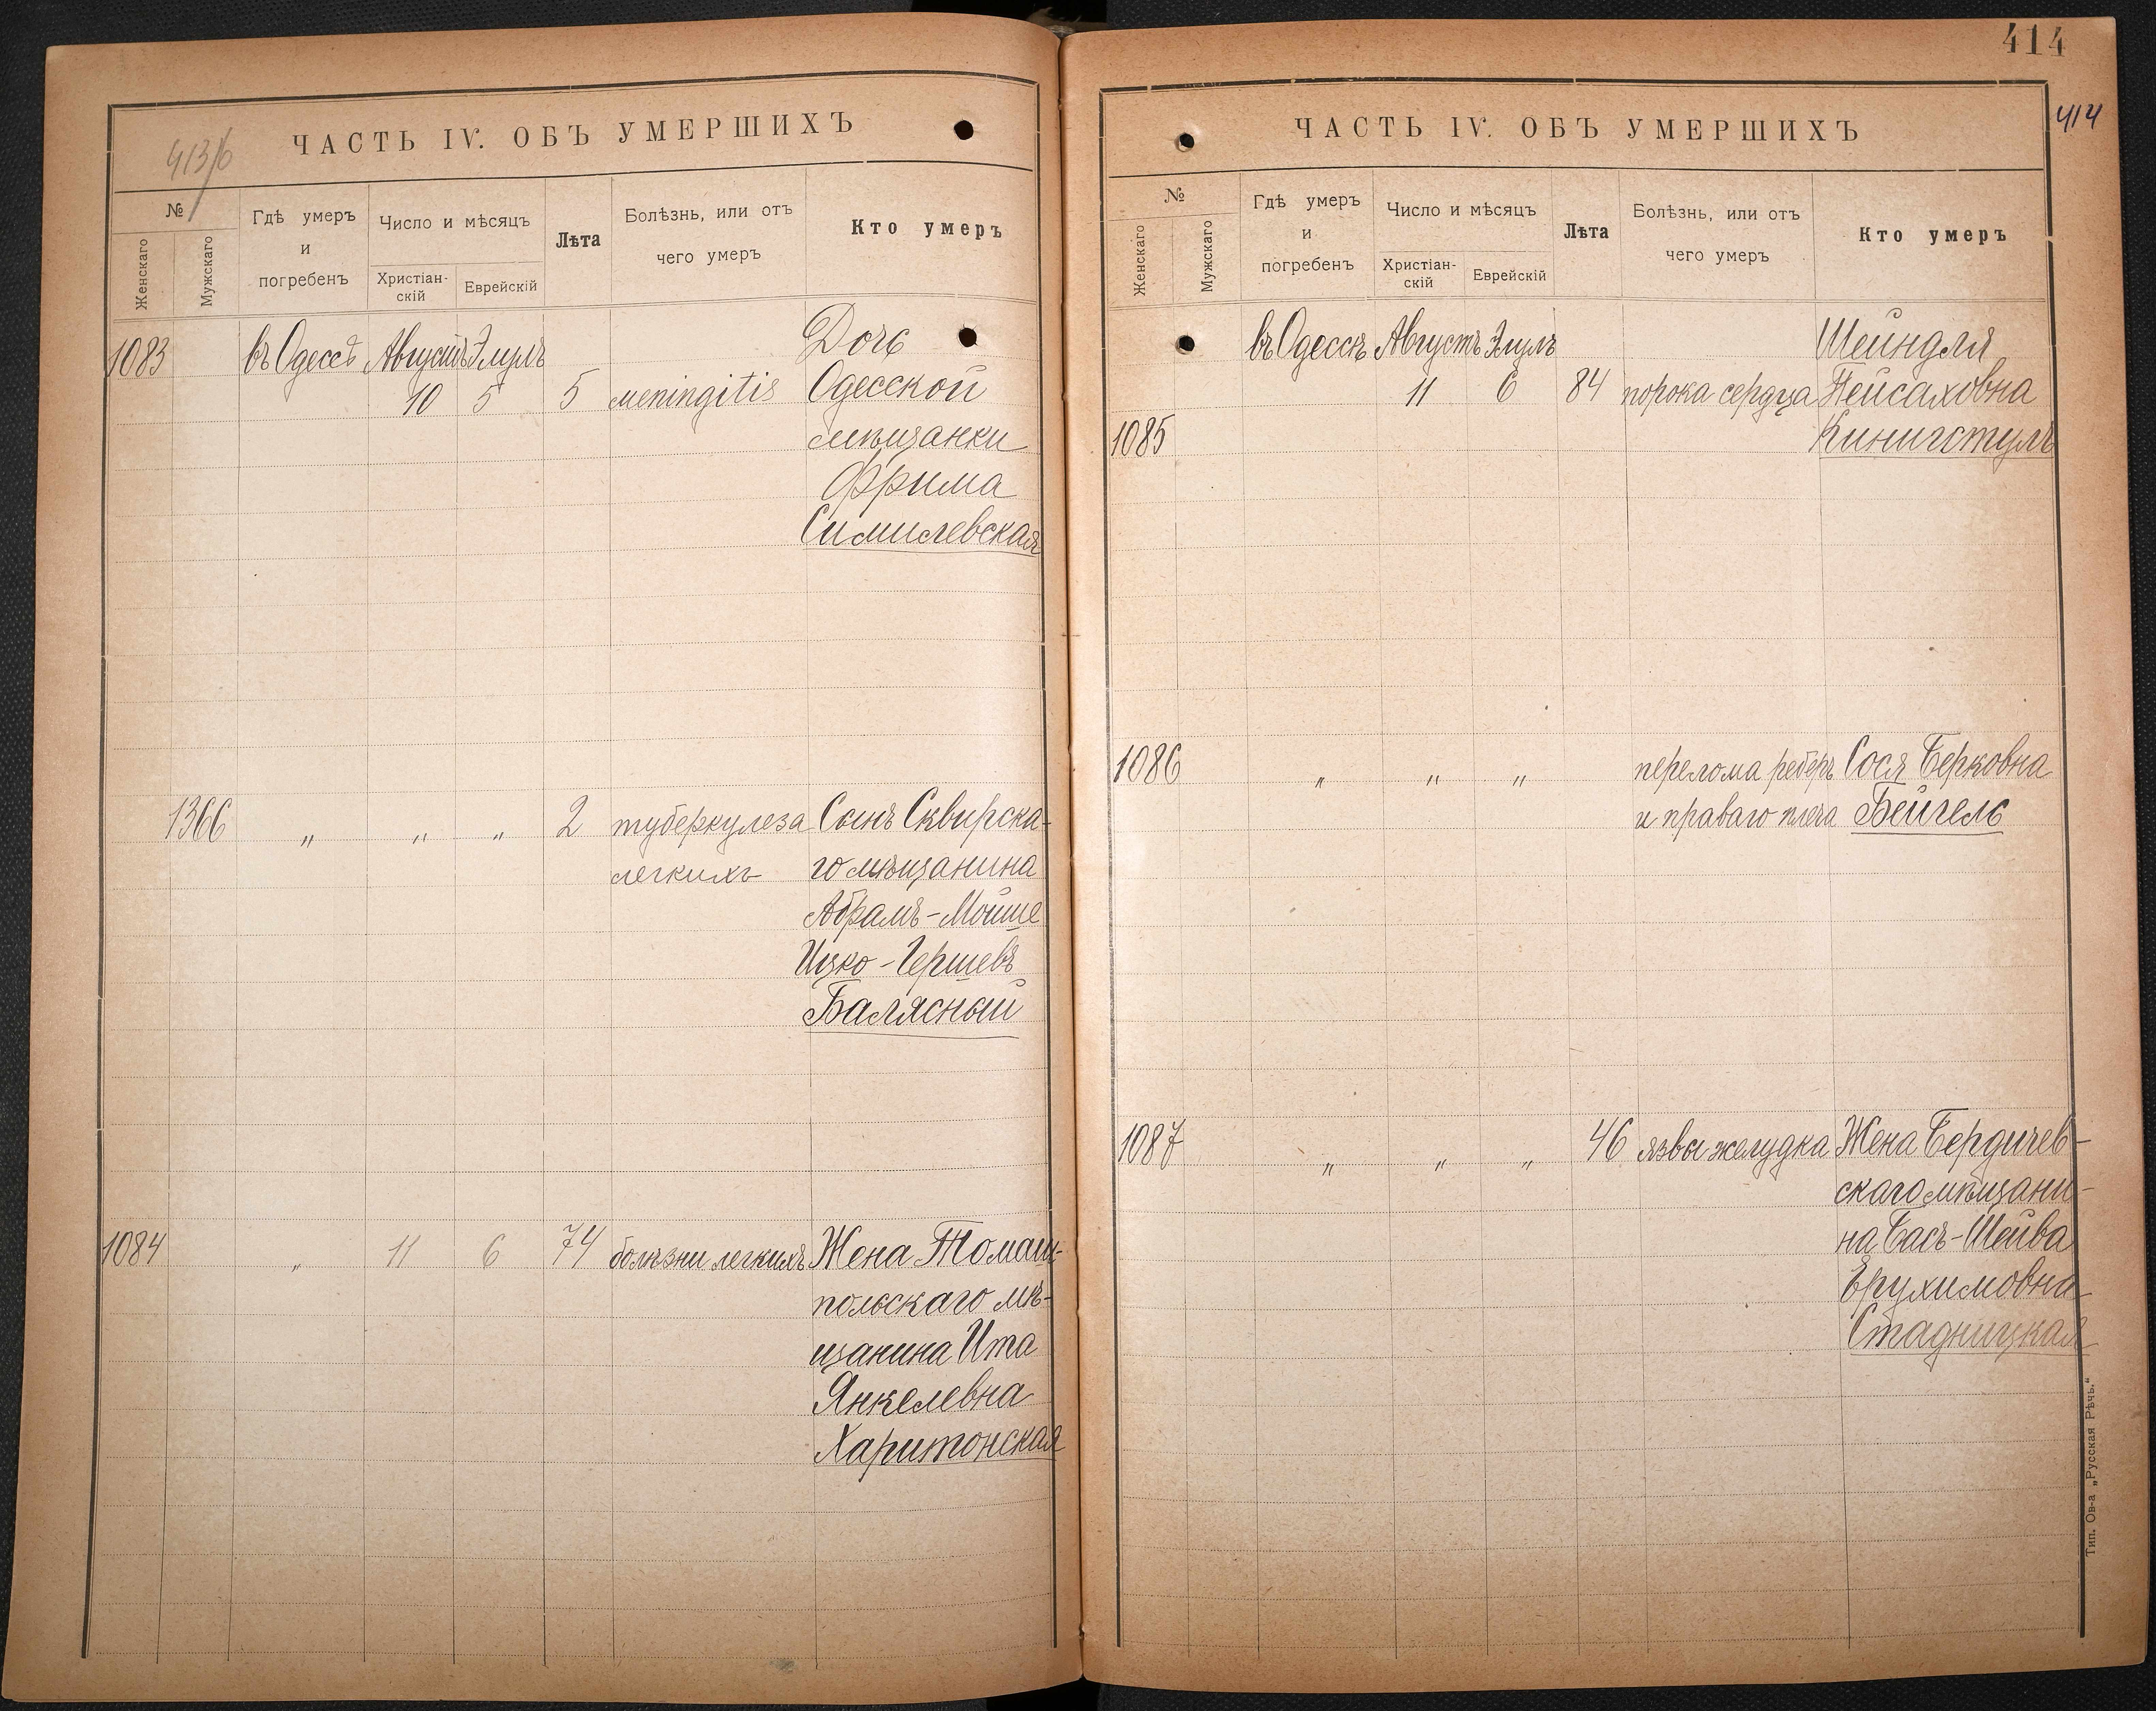 413/б
ЧАСТЬ IV. ОБЪ УМЕРШИХЪ
№
Женскаго
Мужскаго
Гдѣ умеръ
и
погребенъ
Число и мѣсяцъ
Христіан-
скій
Еврейскій
Лѣта
Болѣзнь, или отъ
чего умеръ
Кто умеръ
1083 въ Одессѣ Августъ Элулъ Дочь
10 5 5 meningitis Одесской
мѣщанки
Фрима
Симилевская
1366 „ „ „ 2 туберкулеза Сынъ Сквирска-
легкихъ го мѣщанина
Абрамъ-Мойше
Ицко-Гершевъ
Балясный
1084 „ 11 6 74 болѣзни легкихъ Жена Томаш-
польскаго мѣ-
щанина Ита
Янкелевна
Харитонская
414
414
ЧАСТЬ IV. ОБЪ УМЕРШИХЪ
№
Женскаго
Мужскаго
Гдѣ умеръ
и
погребенъ
Число и мѣсяцъ
Христіан-
скій
Еврейскій
Лѣта
Болѣзнь, или отъ
чего умеръ
Кто умеръ
въ Одессѣ Августъ Элулъ Шейндля
11 6 84 порока сердца Пейсаховна
1085 Кинигстулъ
1086 „ „ „ перелома реберъ Сося Берковна
и праваго плеча Бейгель
1087 „ „ „ 46 язвы желудка Жена Бердичев-
скаго мѣщани-
на Бася-Шейва
Ерухимовна
Стадницкая
Тип. Ов-а „Русская Рѣчь.“